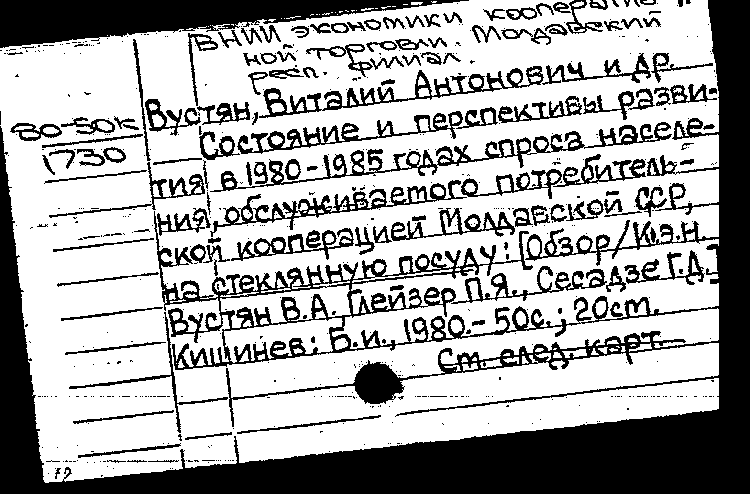 ВНИИ экономики кооператив
ной торговли. Молдавский
респ. филиал.
Вустян, Виталий Антонович и др.
80-50к
1730
Состояние и перспективы разви-
тия в 1980-1985 годах спроса населе-
ния, обслуживаемого потребитель-
ской кооперацией Молдавской ССР,
на стеклянную посуду: [Обзор/К.э.н.
Вустян В.А., Глейзер П.Я., Сесадзе Г.Д.]
Кишинев: Б.и., 1980.- 50с.; 20ст.
Ст. след. карт.